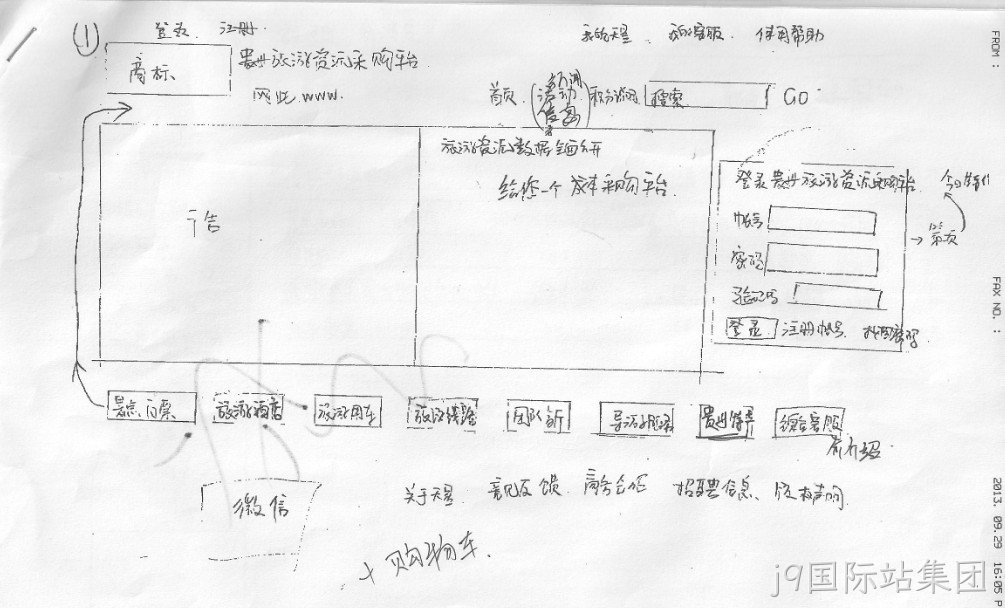 ①
登录 注册
我的天呈 我的客服 使用帮助
商标
贵州旅游资源采购平台
网址 www.
首页 活动 积分说明 搜索 GO
旅游资源数据全面公开
给你一个成本采购平台
广告
登录贵州旅游资源采购平台
帐号
密码
验证码
登录 注册帐号 找回密码
今日特价
景点门票 旅游酒店 旅游用车 旅游线路 团队 导游服务 贵州特产 综合客服
介绍
微信
意见反馈 商务合作 招聘信息 版权声明
+ 购物车
FROM :
FAX NO. :
2013. 09.29 16:05 P
j9国际站集团